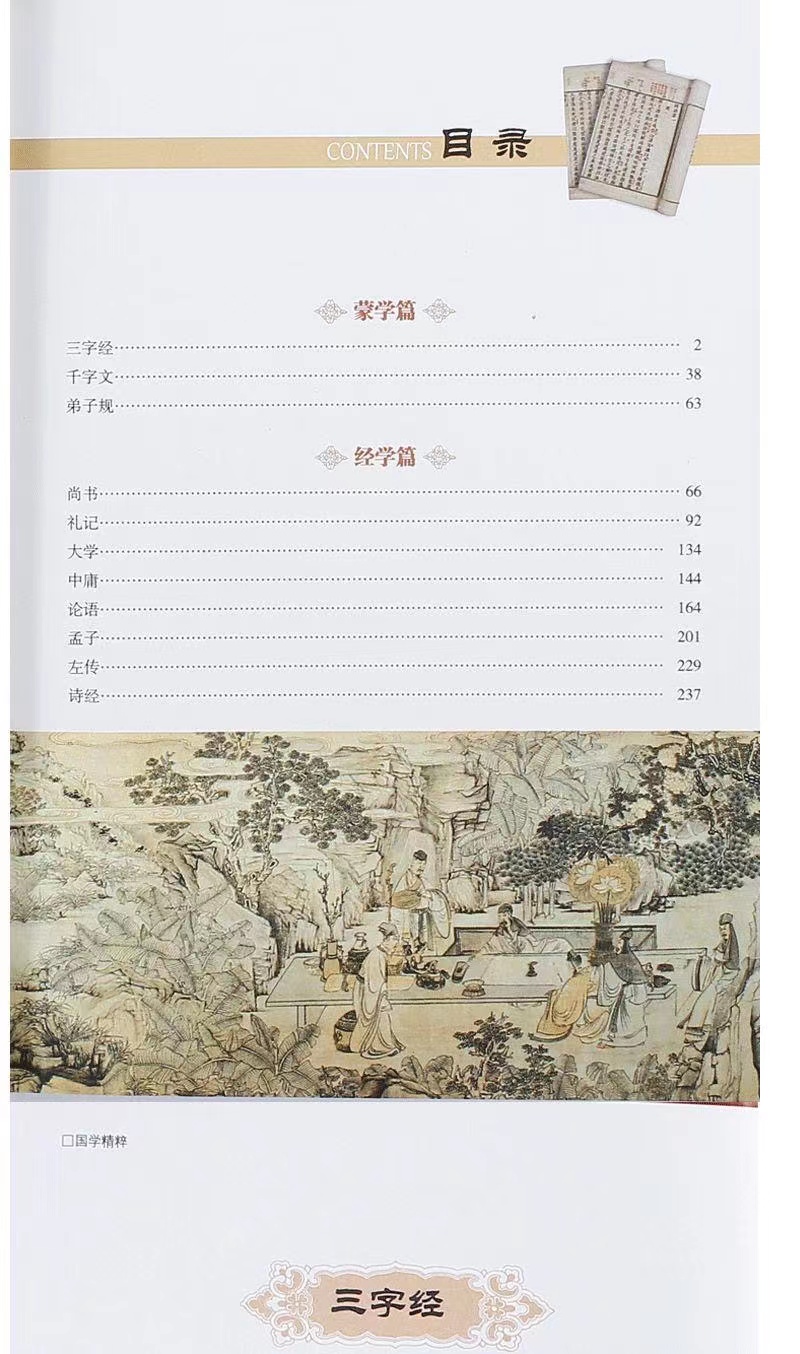 CONTENTS 目录
蒙学篇
三字经 2
千字文 38
弟子规 63
经学篇
尚书 66
礼记 92
大学 134
中庸 144
论语 164
孟子 201
左传 229
诗经 237
□国学精粹
三字经